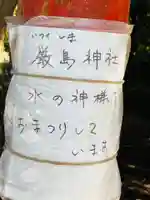 いつく しま
厳島神社
水の神様で
おまつりして
います